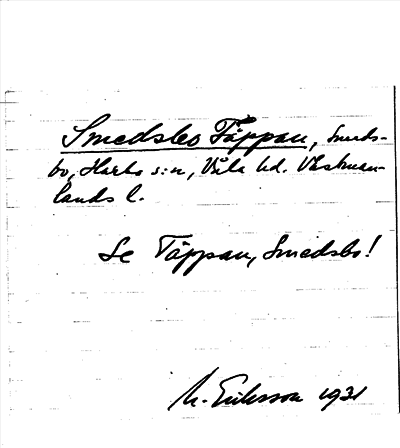 Smedsbo Täppan, Smeds-
bo, Harbo s:n, Våla hd. Västman-
lands l.
Se Täppan, Smedsbo!
M. Eriksson 1931